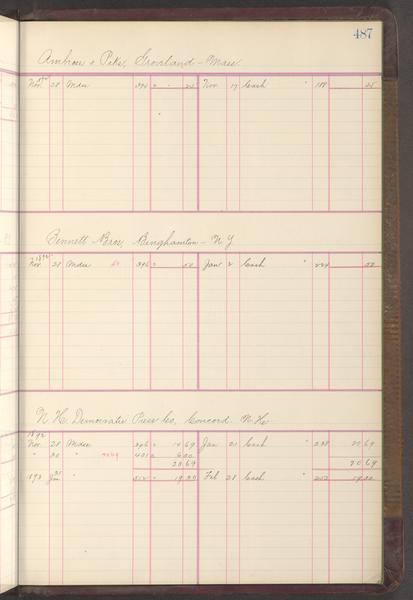 487
Ambrose & Pike, Groveland - Mass
1892
Nov 28 Mdse 396 Nov 17 Cash " 188 25
Bennett Bros, Binghamton - N.Y
1892
Nov 28 Mdse 396 50 Jan 2 Cash " 224 50
N.H. Democratic Press Co, Concord. N.H.
1892
Nov 28 Mdse 396 14 69 Jan 21 Cash " 238 20 69
" 30 " 401 6 00
20 69 20 69
1893 Jan 25 " 512 19 20 Feb 28 Cash " 19 20